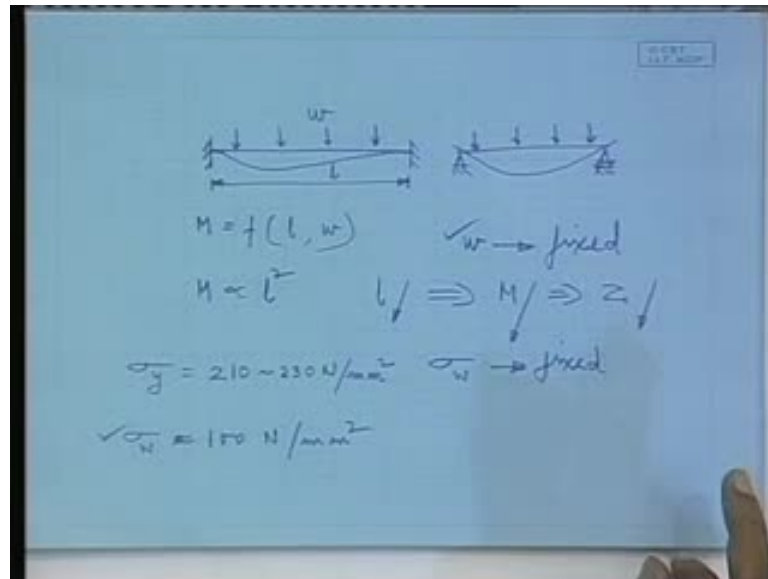 w
l
M = f(l, w)  ✓w → fixed
M ∝ l²  l↓ ⇒ M↓ ⇒ Z↓
σy = 210 ~ 230 N/mm²  σw → fixed
✓σw = 100 N/mm²